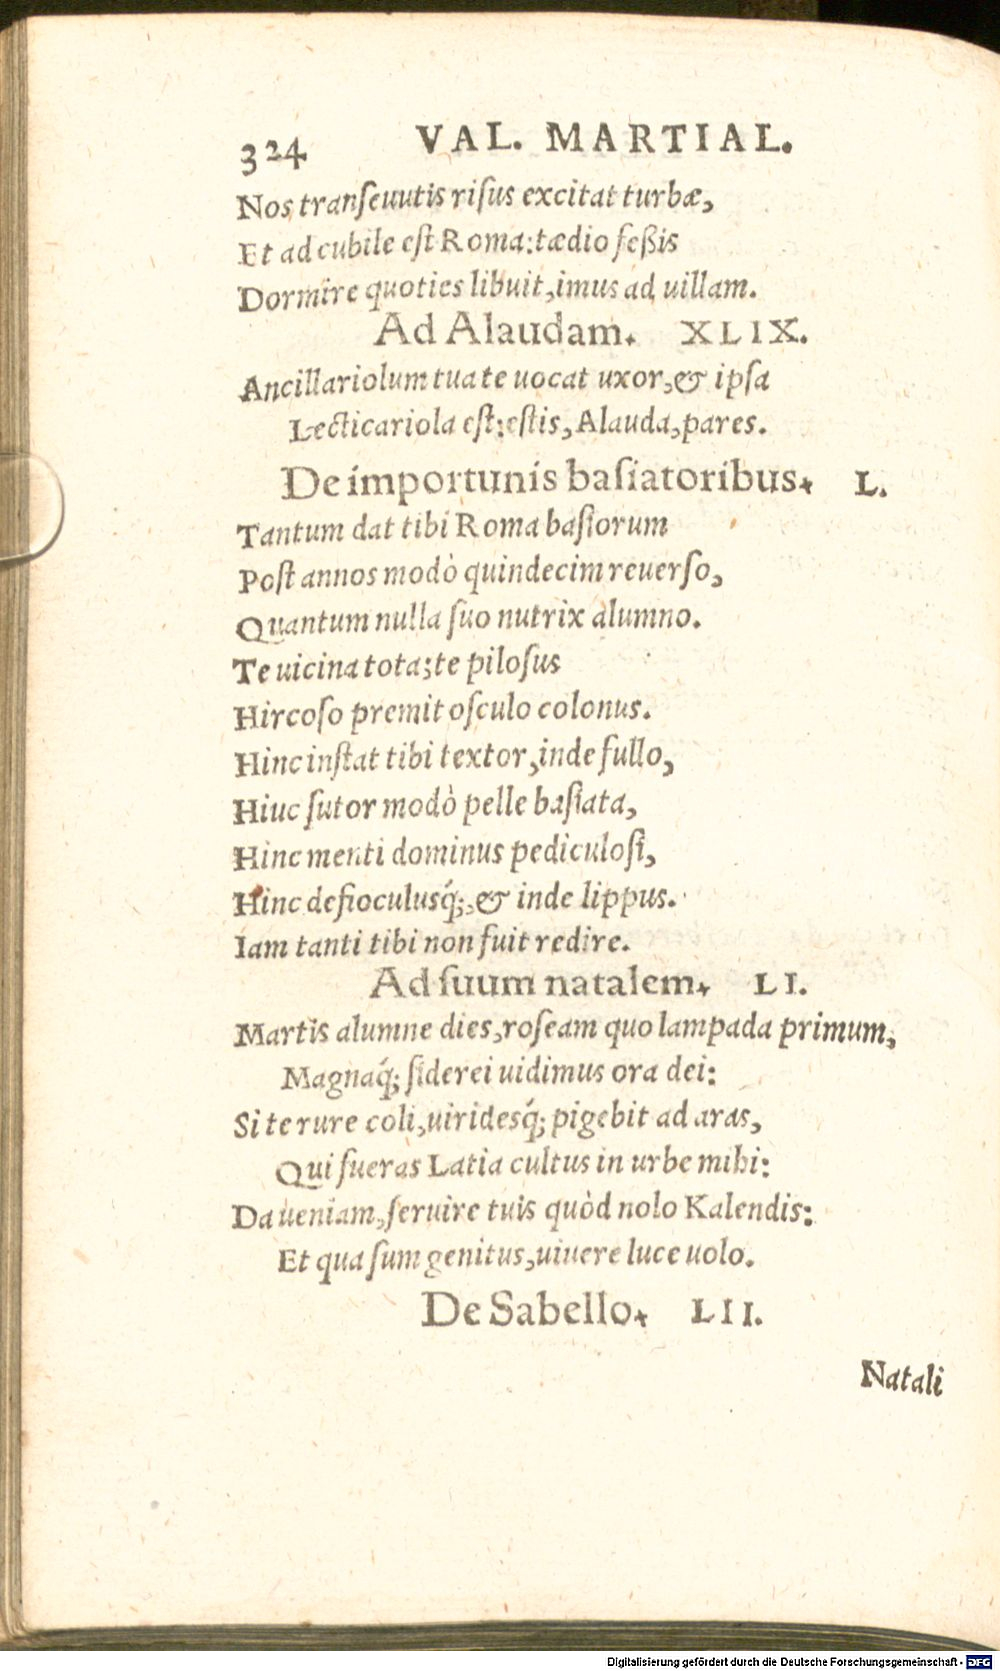 324 VAL. MARTIAL.
Nos transeuutis risus excitat turbæ,
Et ad cubile est Roma: tædio feßis
Dormire quoties libuit, imus ad uillam.
Ad Alaudam. XLIX.
Ancillariolum tua te uocat uxor, & ipsa
Lecticariola est: estis, Alauda, pares.
De importunis basiatoribus. L.
Tantum dat tibi Roma basiorum
Post annos modò quindecim reuerso,
Quantum nulla suo nutrix alumno.
Te uicina tota; te pilosus
Hircoso premit osculo colonus.
Hinc instat tibi textor, inde fullo,
Hiuc sutor modò pelle basiata,
Hinc menti dominus pediculosi,
Hinc defioculusq́;, & inde lippus.
Iam tanti tibi non fuit redire.
Ad suum natalem. LI.
Martis alumne dies, roseam quo lampada primum,
Magnaq́; siderei uidimus ora dei:
Si te rure coli, uiridesq́; pigebit ad aras,
Qui fueras Latia cultus in urbe mihi:
Da ueniam, seruire tuis quòd nolo Kalendis:
Et qua sum genitus, uiuere luce uolo.
De Sabello. LII.
Natali
Digitalisierung gefördert durch die Deutsche Forschungsgemeinschaft - DFG